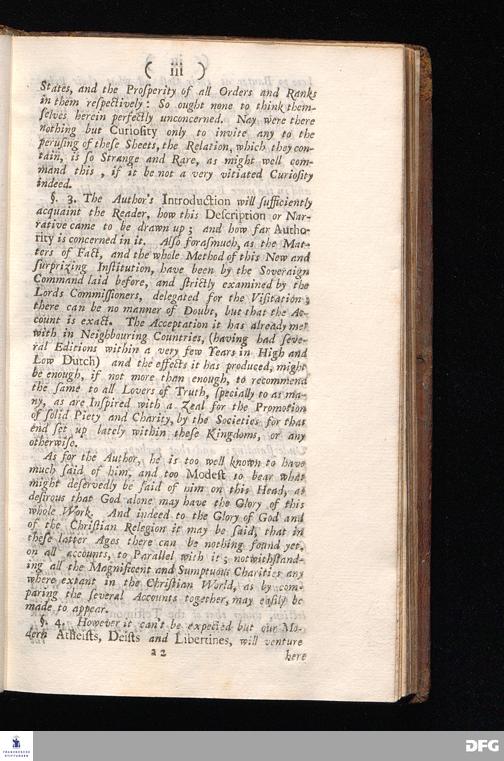 ( iii )
States, and the Prosperity of all Orders and Ranks
in them respectively: So ought none to think them-
selves herein perfectly unconcerned. Nay were there
nothing but Curiosity only to invite any to the
perusing of these Sheets, the Relation, which they con-
tain, is so Strange and Rare, as might well com-
mand this, if it be not a very vitiated Curiosity
indeed.
§. 3. The Author's Introduction will sufficiently
acquaint the Reader, how this Description or Nar-
rative came to be drawn up; and how far Autho-
rity is concerned in it. Also forasmuch, as the Mat-
ters of Fact, and the whole Method of this New and
surprizing Institution, have been by the Soveraign
Command laid before, and strictly examined by the
Lords Commissioners, delegated for the Visitation;
there can be no manner of Doubt, but that the Ac-
count is exact. The Acceptation it has already met
with in Neighbouring Countries, (having had seve-
ral Editions within a very few Years in High and
Low Dutch) and the effects it has produced, might
be enough, if not more than enough, to recommend
the same to all Lovers of Truth, specially to as ma-
ny, as are Inspired with a Zeal for the Promotion
of solid Piety and Charity, by the Societies for that
end set up lately within these Kingdoms, or any
otherwise.
As for the Author, he is too well known to have
much said of him, and too Modest to bear what
might deservedly be said of him on this Head, as
desirous that God alone may have the Glory of this
whole Work. And indeed to the Glory of God and
of the Christian Relegion it may be said, that in
these latter Ages there can be nothing found yet,
on all accounts, to Parallel with it; notwithstand-
ing all the Magnificent and Sumptuous Charities any
where extant in the Christian World, as by com-
paring the several Accounts together, may easily be
made to appear.
§. 4. However it can't be expected but our Mo-
dern Atheists, Deists and Libertines, will venture
a 2 here
FRANCKESCHE
STIFTUNGEN
DFG